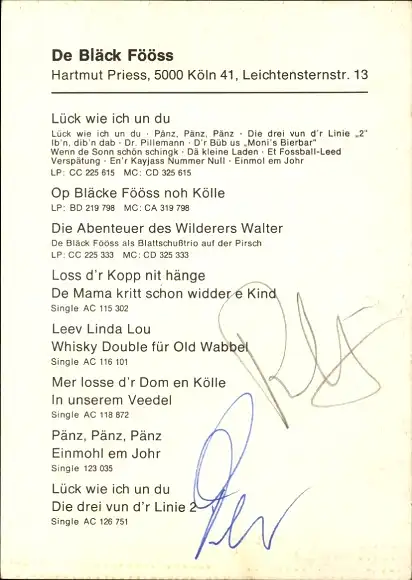 De Bläck Fööss
Hartmut Priess, 5000 Köln 41, Leichtensternstr. 13
Lück wie ich un du
Lück wie ich un du · Pänz, Pänz, Pänz · Die drei vun d'r Linie „2"
Ib'n, dib'n dab · Dr. Pillemann · D'r Büb us „Moni's Bierbar"
Wenn de Sonn schön schingk · Dä kleine Laden · Et Fossball-Leed
Verspätung · En'r Kayjass Nummer Null · Einmol em Johr
LP: CC 225 615 MC: CD 325 615
Op Bläcke Fööss noh Kölle
LP: BD 219 798 MC: CA 319 798
Die Abenteuer des Wilderers Walter
De Bläck Fööss als Blattschußtrio auf der Pirsch
LP: CC 225 333 MC: CD 325 333
Loss d'r Kopp nit hänge
De Mama kritt schon widder e Kind
Single AC 115 302
Leev Linda Lou
Whisky Double für Old Wabbel
Single AC 116 101
Mer losse d'r Dom en Kölle
In unserem Veedel
Single AC 118 872
Pänz, Pänz, Pänz
Einmohl em Johr
Single 123 035
Lück wie ich un du
Die drei vun d'r Linie 2
Single AC 126 751